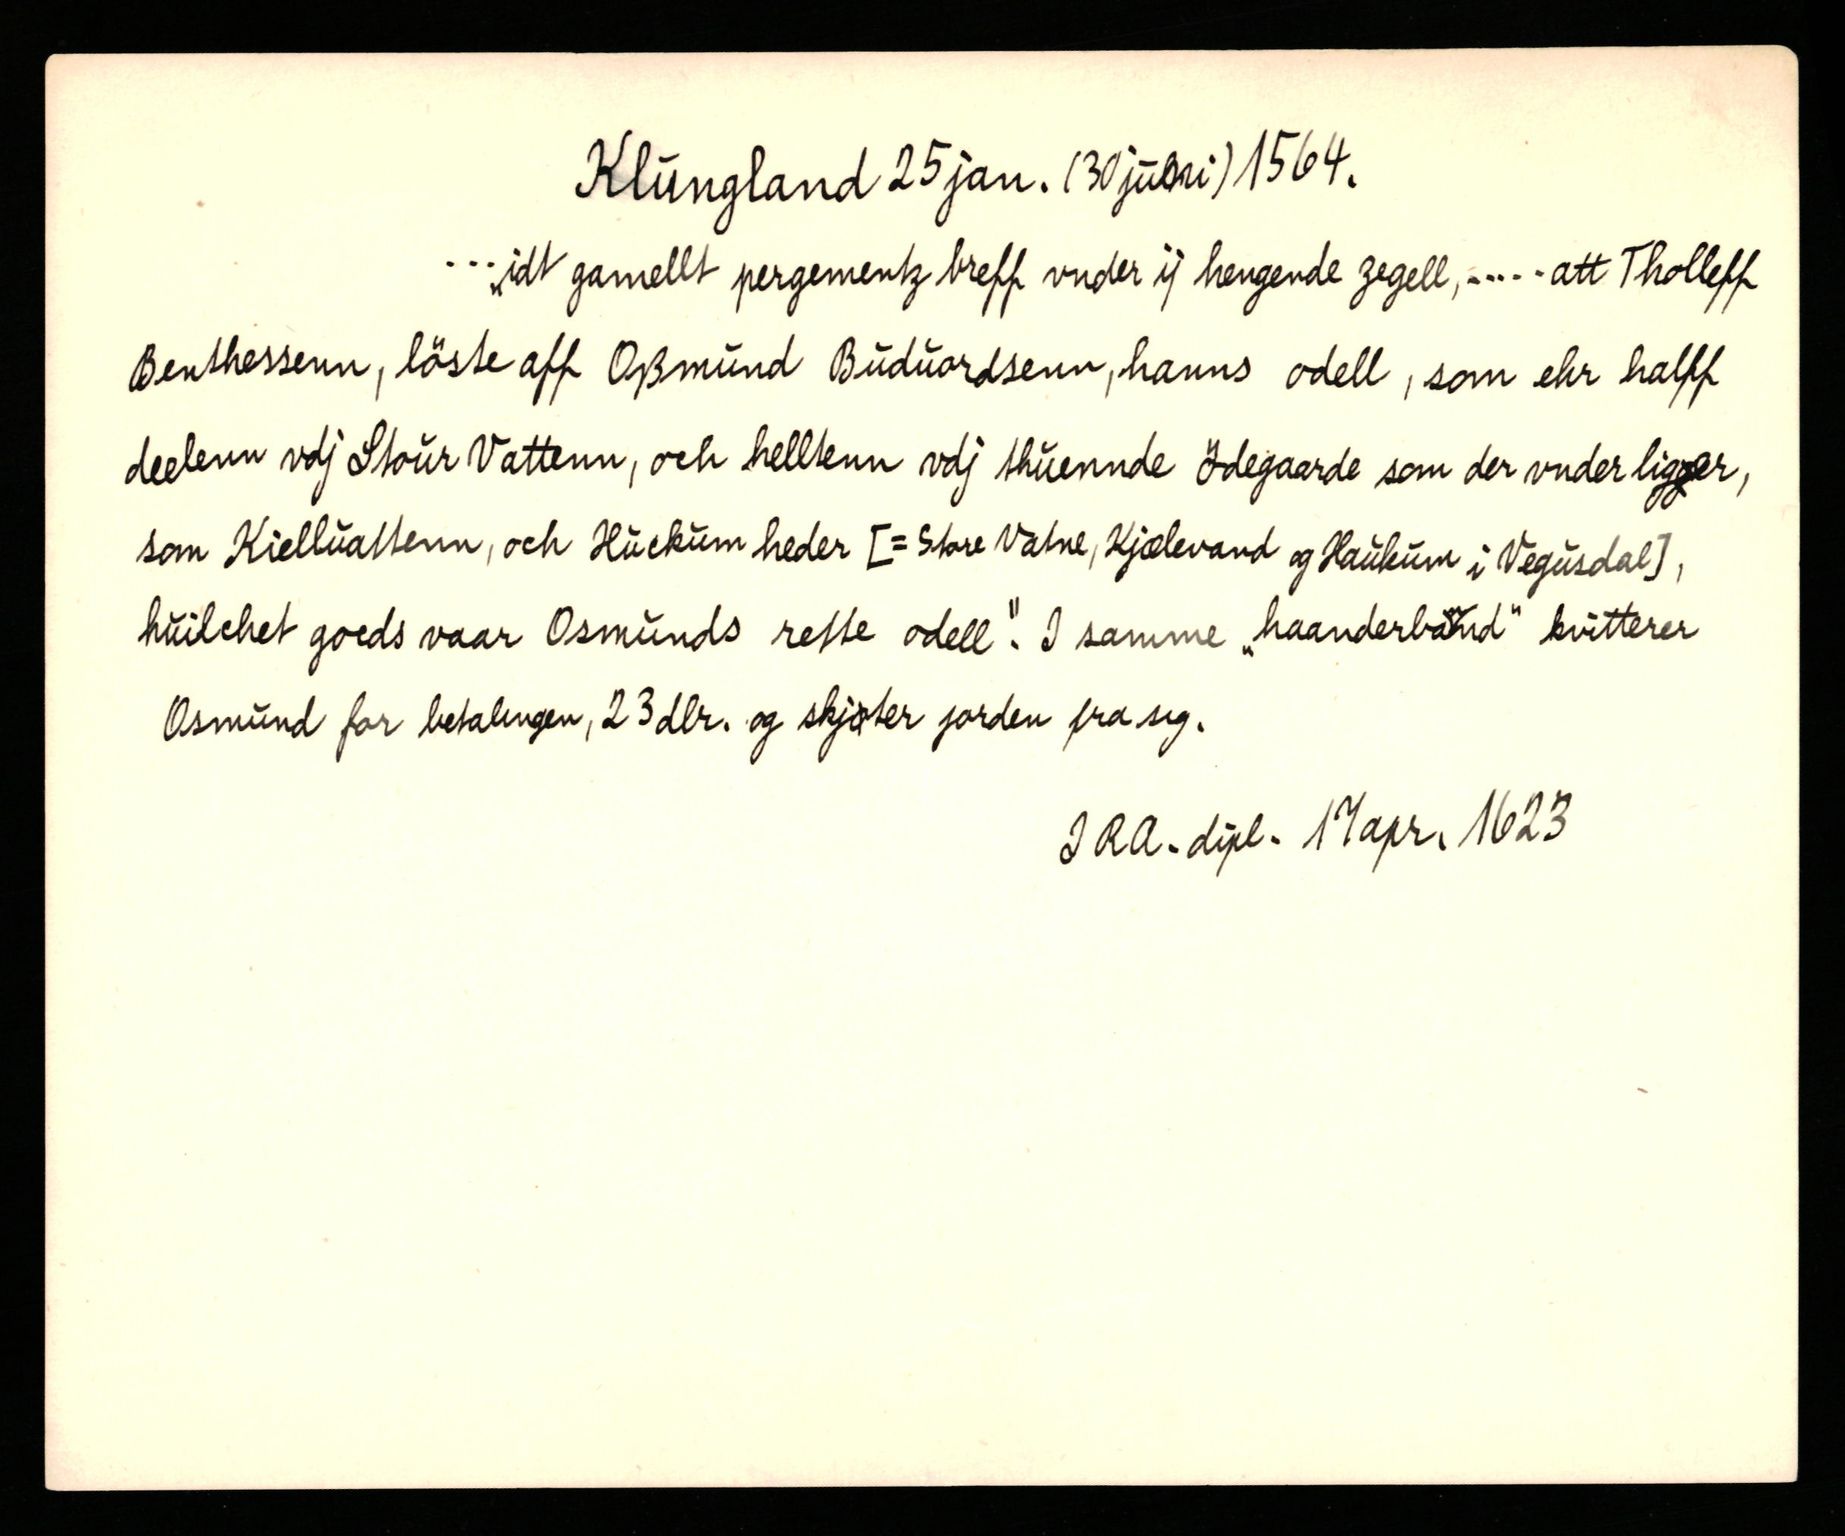 Klungland 25 jan. (30 juni) 1564.
... „idt gamellt pergementz breff vnder ij hengende zegell, ..... att Tholleff
Benthessenn, löste aff Oßmund Buduordsenn, hanns odell, som ehr halff
deelenn vdj Stour Vattenn, och helltenn vdj thuennde ödegaarde som der vnder ligger,
som Kielluattenn, och Huckum heder [= Store Vatne, Kjælevand og Haukum i Vegusdal],
huilchet goeds vaar Osmunds rette odell". I samme „haanderbånd" kvitterer
Osmund for betalingen, 23 dlr. og skjøter jorden fra sig.
I RA. dipl. 17 apr. 1623